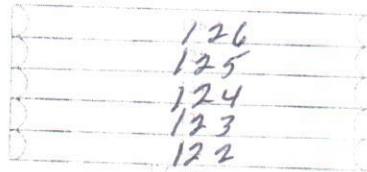 126
125
124
123
122